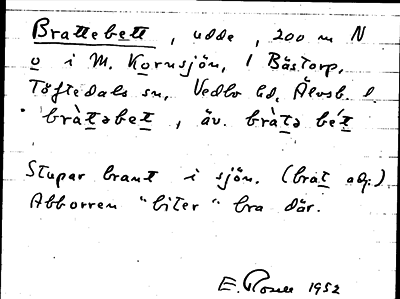 Brattebett, udde, 200 m N
o i M. Kornsjön, i Båstorp,
Töftedals sn, Vedbo hd, Älvsb. l
· bràtəbet, äv. bràtə bét
Stupar brant i sjön. (brat adj.)
Abborren "biter" bra där.
E. Rosell 1952